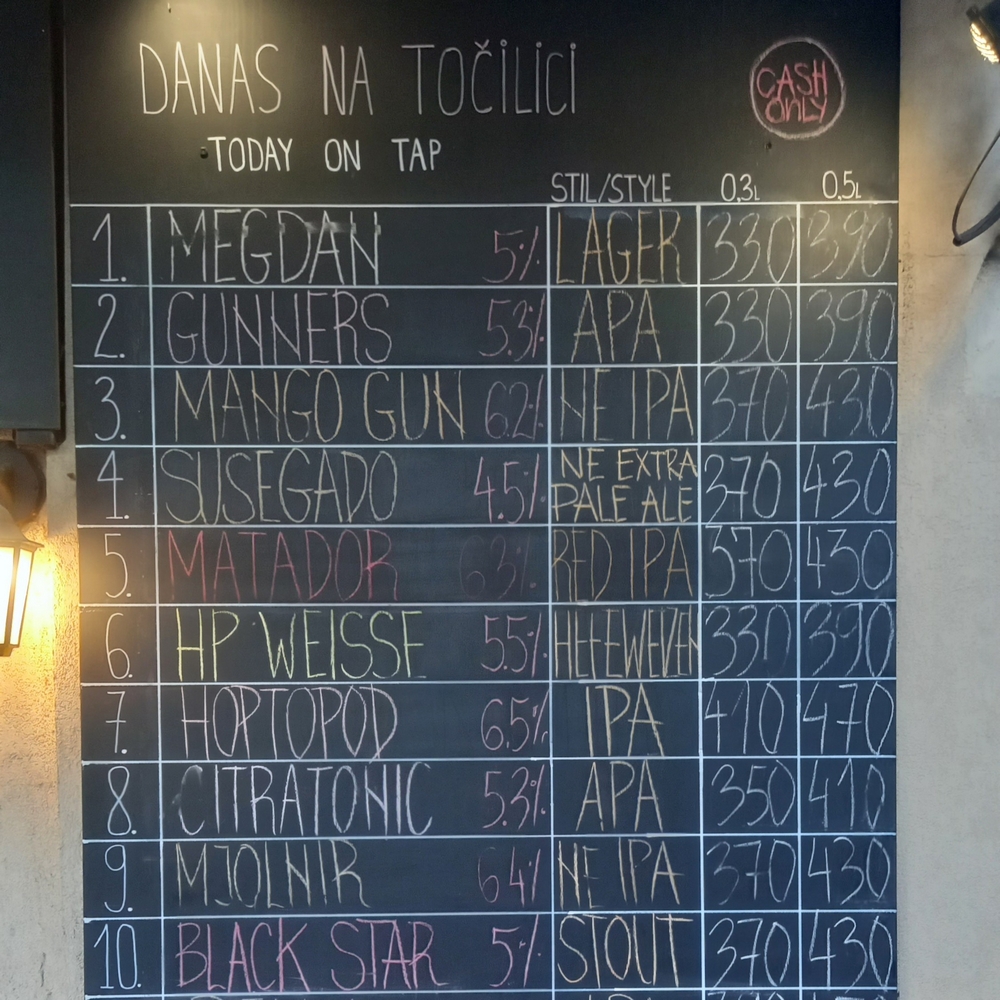 DANAS NA TOČILICI
CASH ONLY
TODAY ON TAP
STIL/STYLE 0,3L 0,5L
1. MEGDAN 5% LAGER 330 390
2. GUNNERS 5.3% APA 330 390
3. MANGO GUN 6.2% NE IPA 370 430
4. SUSEGADO 4.5% NE EXTRA PALE ALE 370 430
5. MATADOR 6.3% RED IPA 370 430
6. HP WEISSE 5.5% HEFEWEIZEN 330 390
7. HOPTOPOD 6.5% IPA 410 470
8. CITRATONIC 5.3% APA 350 410
9. MJOLNIR 6.4% NE IPA 370 430
10. BLACK STAR 5% STOUT 370 430